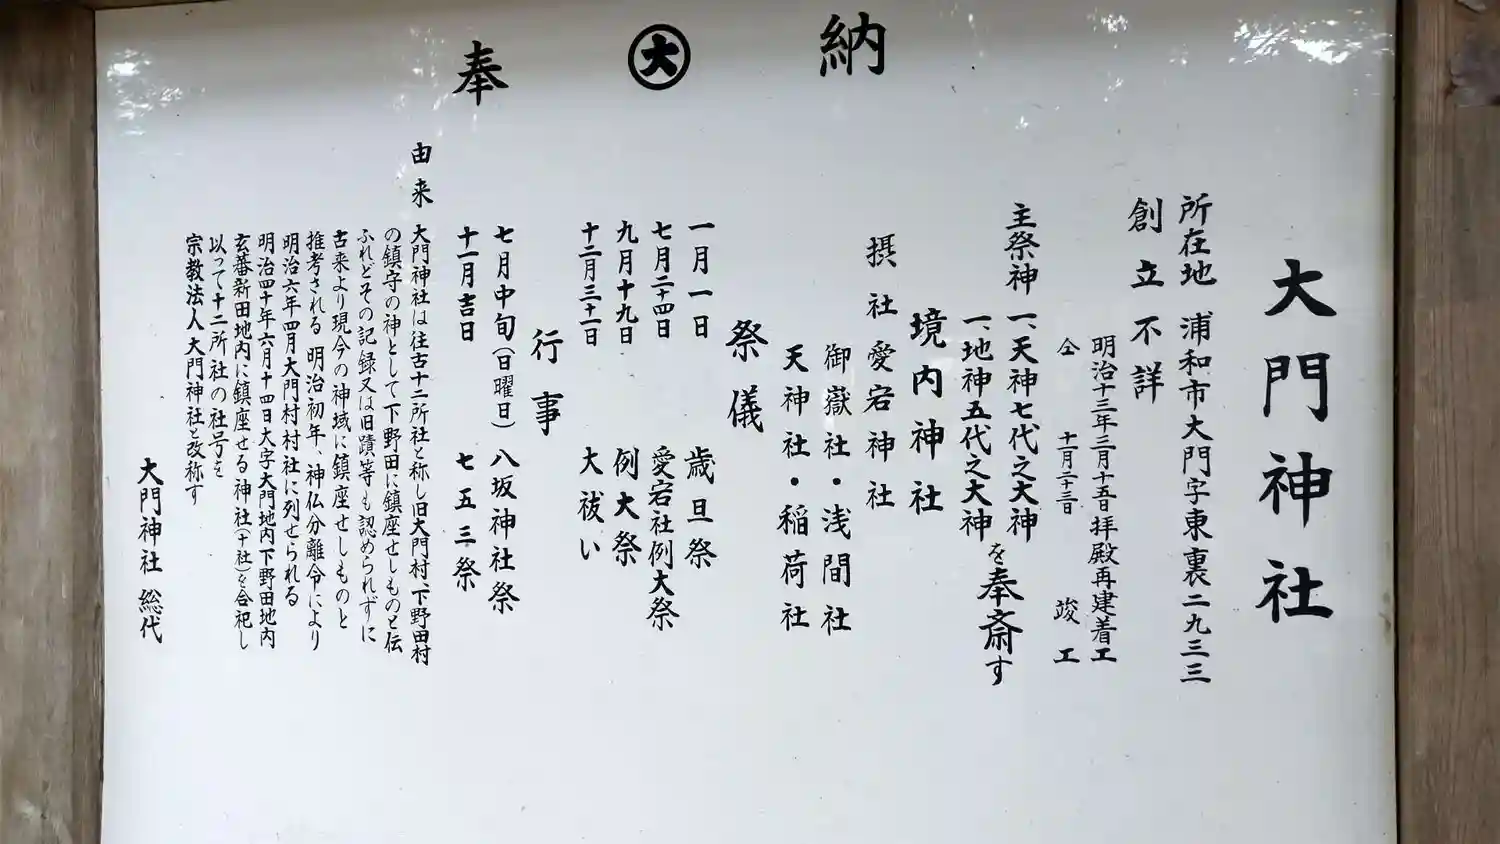 奉 大 納
大門神社
所在地 浦和市大門字東裏二九三三
創立不詳
明治十三年三月十五日拝殿再建着工
仝 十一月二十三日 竣工
主祭神 一、天神七代之大神
一、地神五代之大神
を奉斎す
境内神社
摂社愛宕神社
御嶽社・浅間社
天神社・稲荷社
祭儀
一月一日 歳旦祭
七月二十四日 愛宕社例大祭
九月十九日 例大祭
十二月三十一日 大祓い
行事
七月中旬(日曜日) 八坂神社祭
十一月吉日 七五三祭
由来 大門神社は往古十二所社と称し旧大門村、下野田村
の鎮守の神として下野田に鎮座せしものと伝
ふれどその記録又は旧蹟等も認められずに
古来より現今の神域に鎮座せしものと
推考される 明治初年、神仏分離令により
明治六年四月大門村村社に列せられる
明治四十年六月十四日大字大門地内下野田地内
玄蕃新田地内に鎮座せる神社(十社)を合祀し
以って十二所社の社号を
宗教法人大門神社と改称す
大門神社 総代